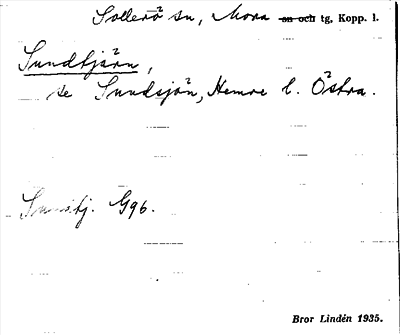 Sollerö sn, Mora sn och tg, Kopp. l.
Sundtjärn,
se Sundsjön, Hemre l. Östra.
G96.
Bror Lindén 1935.